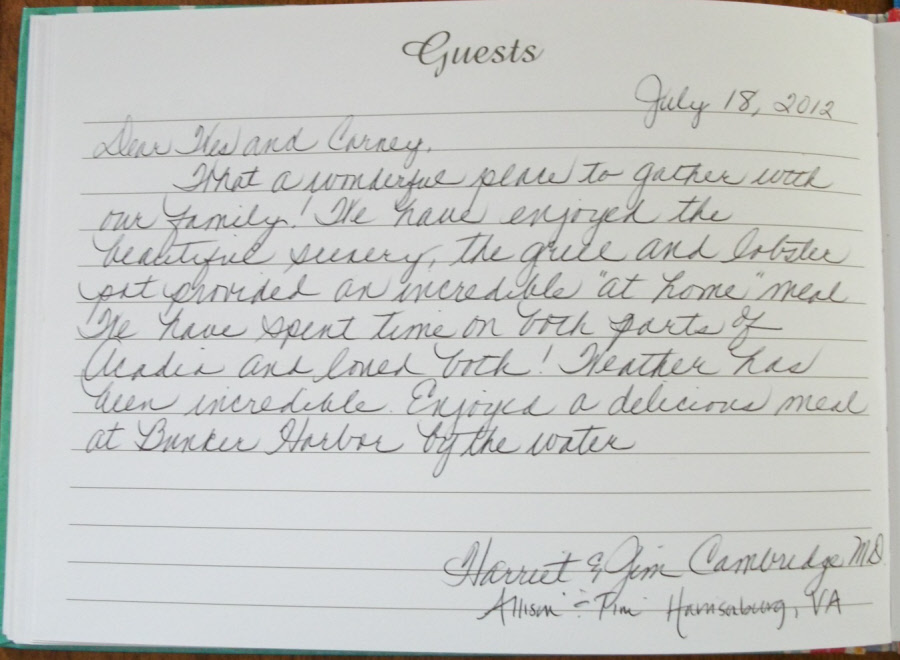 Guests
July 18, 2012
Dear Wes and Carney,
What a wonderful place to gather with
our family! We have enjoyed the
beautiful scenery, the grill and lobster
pot provided an incredible "at home" meal
We have spent time on both parts of
Acadia and loved both! Weather has
been incredible. Enjoyed a delicious meal
at Bunker Harbor by the water
Harriet & Jim Cambridge MD
Allison + Tim Harrisonburg, VA